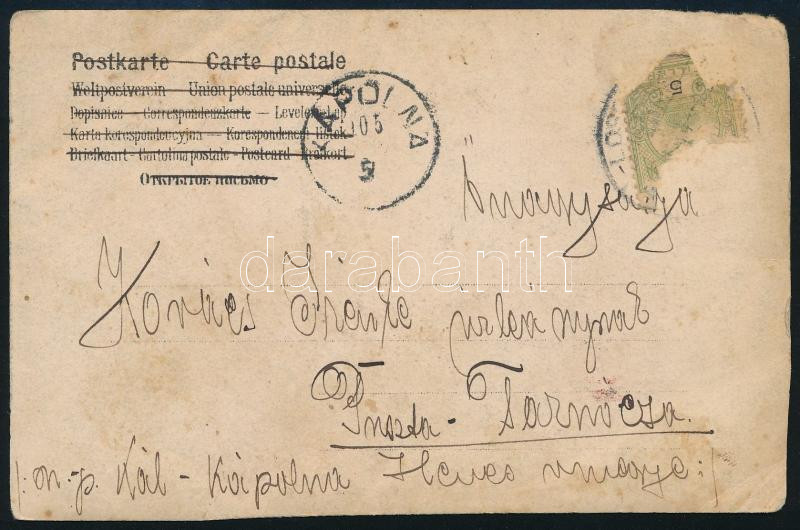 Postkarte — Carte postale
Weltpostverein — Union postale universelle
Dopisnice — Correspondenzkarte — Levelező-Lap
Karta korespondencyjna — Korespondencni listek
Briefkaart - Cartolina postale - Postcard - Brefkort
Открытое письмо
KÁPOLNA
905
5
Őnagysága
Kovács Irénke úrleánynak
Puszta-Tarnócza.
/: u. p. Kál-Kápolna Heves megye :/
darabanth